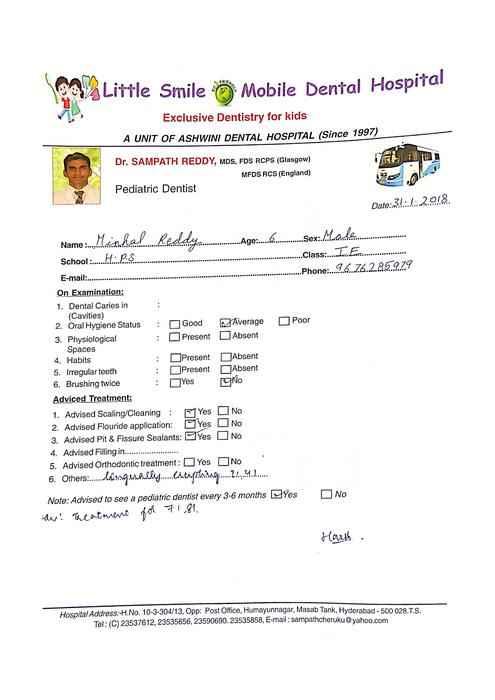 Little Smile Mobile Dental Hospital
Exclusive Dentistry for kids
A UNIT OF ASHWINI DENTAL HOSPITAL (Since 1997)
Dr. SAMPATH REDDY, MDS, FDS RCPS (Glasgow)
MFDS RCS (England)
Pediatric Dentist
Date: 31-1-2018
Name: Minhal Reddy Age: 6 Sex: Male
School: H.P.S Class: I.E
E-mail: Phone: 9676285979
On Examination:
1. Dental Caries in :
(Cavities)
2. Oral Hygiene Status : Good Average Poor
3. Physiological : Present Absent
Spaces
4. Habits : Present Absent
5. Irregular teeth : Present Absent
6. Brushing twice : Yes No
Adviced Treatment:
1. Advised Scaling/Cleaning : Yes No
2. Advised Flouride application: Yes No
3. Advised Pit & Fissure Sealants: Yes No
4. Advised Filling in
5. Advised Orthodontic treatment : Yes No
6. Others: lingually erupting 31,41
Note: Advised to see a pediatric dentist every 3-6 months Yes No
Adv: Treatment for 71,81.
Hospital Address:-H.No. 10-3-304/13, Opp: Post Office, Humayunnagar, Masab Tank, Hyderabad - 500 028.T.S.
Tel : (C) 23537612, 23535656, 23590690. 23535858, E-mail : sampathcheruku@yahoo.com